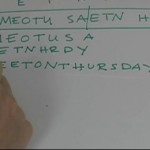 MEOTU SA/ETN H
MEOTUS A
ETNHRDY
EETONTHURSDAY